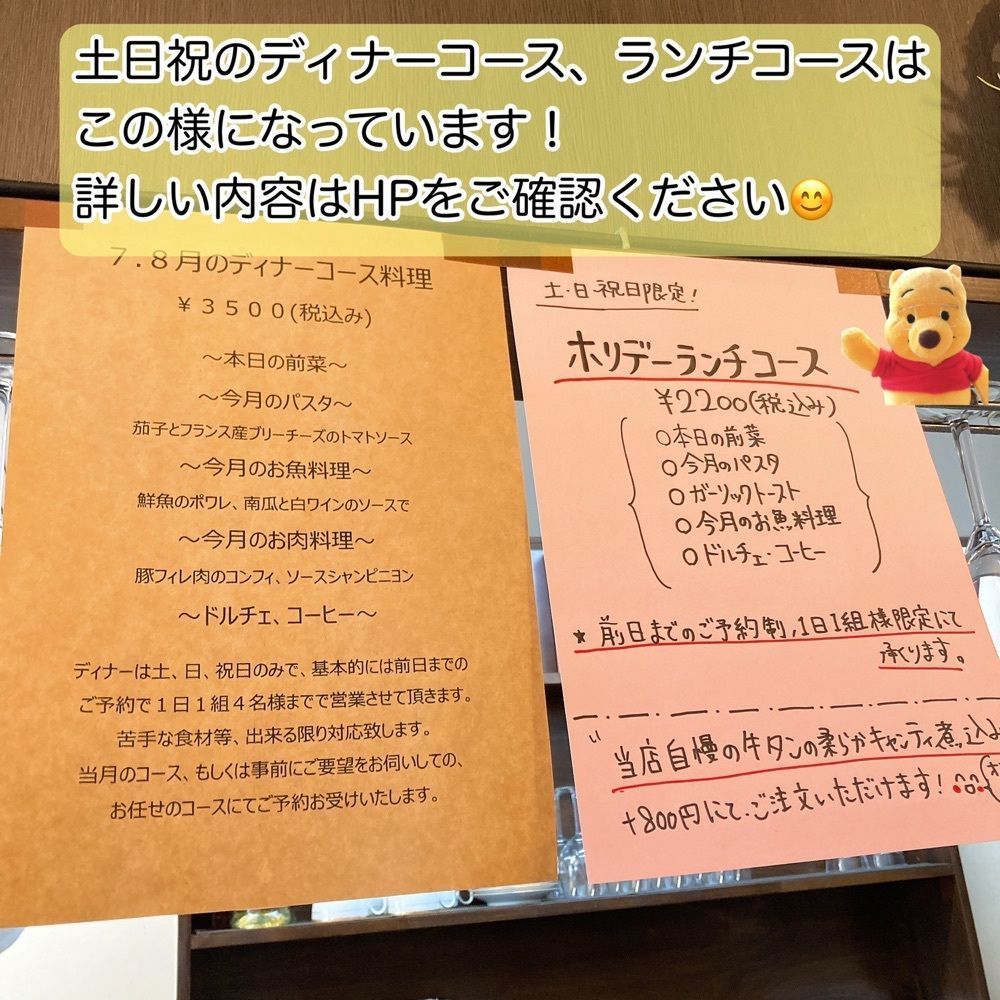 土日祝のディナーコース、ランチコースは
この様になっています！
詳しい内容はHPをご確認ください😊
７.８月のディナーコース料理
￥３５００(税込み)
～本日の前菜～
～今月のパスタ～
茄子とフランス産ブリーチーズのトマトソース
～今月のお魚料理～
鮮魚のポワレ、南瓜と白ワインのソースで
～今月のお肉料理～
豚フィレ肉のコンフィ、ソースシャンピニヨン
～ドルチェ、コーヒー～
ディナーは土、日、祝日のみで、基本的には前日までの
ご予約で１日１組４名様までで営業させて頂きます。
苦手な食材等、出来る限り対応致します。
当月のコース、もしくは事前にご要望をお伺いしての、
お任せのコースにてご予約お受けいたします。
土・日・祝日限定！
ホリデーランチコース
¥2200(税込み)
○本日の前菜
○今月のパスタ
○ガーリックトースト
○今月のお魚料理
○ドルチェ・コーヒー
★前日までのご予約制,1日1組様限定にて
承ります。
当店自慢の牛タンの柔らかキャンティ煮込み
+800円にて、ご注文いただけます！